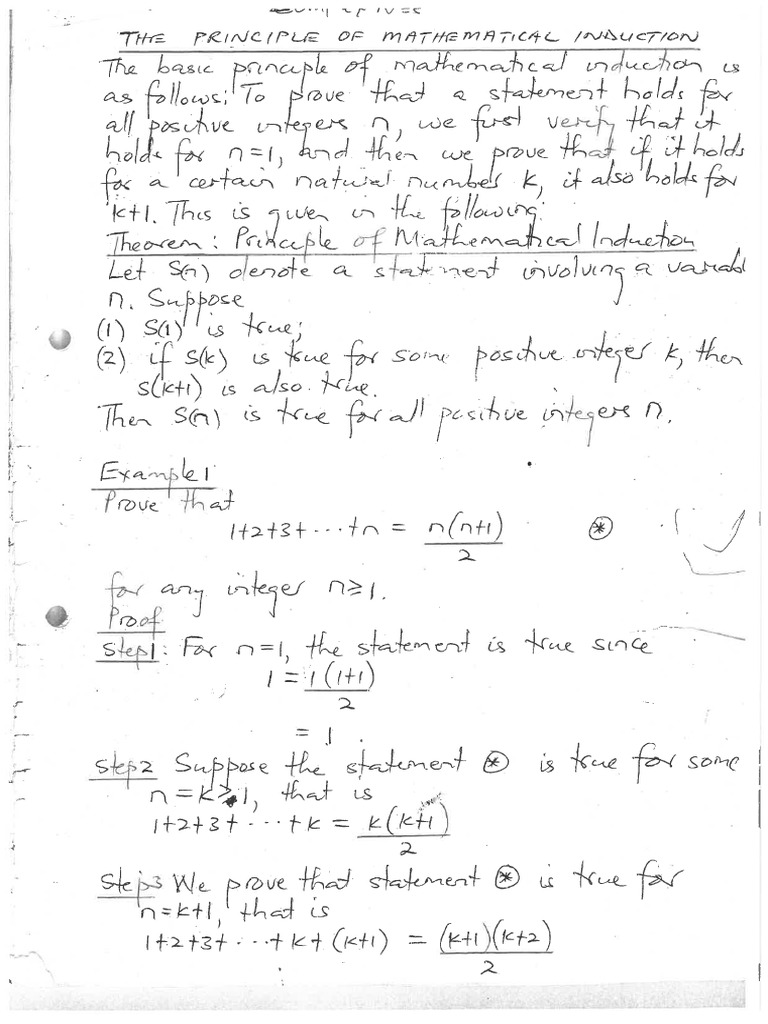 THE PRINCIPLE OF MATHEMATICAL INDUCTION
The basic principle of mathematical induction is
as follows: To prove that a statement holds for
all positive integers n, we first verify that it
holds for n=1, and then we prove that if it holds
for a certain natural number k, it also holds for
k+1. This is given in the following:
Theorem: Principle of Mathematical Induction
Let S(n) denote a statement involving a variabl
n. Suppose
(1) S(1) is true;
(2) if S(k) is true for some positive integer k, then
S(k+1) is also true.
Then S(n) is true for all positive integers n.
Example 1
Prove that
1+2+3+ ... +n = n(n+1)/2 ⊛
for any integer n≥1.
Proof
Step1: For n=1, the statement is true since
1 = 1(1+1)/2
= 1.
Step2 Suppose the statement ⊛ is true for some
n=k≥1, that is
1+2+3+ ... +k = k(k+1)/2
Step3 We prove that statement ⊛ is true for
n=k+1, that is
1+2+3+ ... +k+(k+1) = (k+1)(k+2)/2